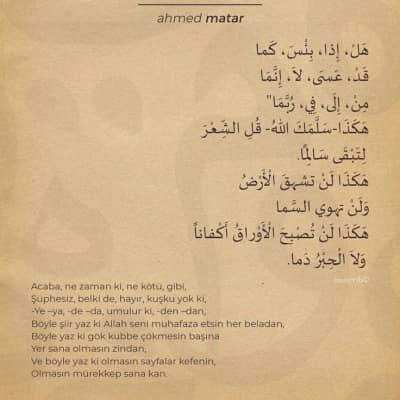 ahmed matar
هَلْ، إِذا، بِئْسَ، كَما
قَدْ، عَسَى، لاَ، إِنَّمَا
مِنْ، إِلَى، فِي، رُبَّمَا"
هَكَذَا-سَلَّمَكَ اللهُ- قُلِ الشِّعْرَ
لِتَبْقَى سَالِمًا.
هَكَذَا لَنْ تشهقَ الْأَرْضُ
وَلَنْ تهوي السَّما
هَكَذَا لَنْ تُصْبِحَ الْأَوْراقُ أَكْفاناً
وَلاَ الْحِبْرُ دَما.
Acaba, ne zaman ki, ne kötü, gibi,
Şüphesiz, belki de, hayır, kuşku yok ki,
-Ye –ya, -de –da, umulur ki, -den –dan,
Böyle şiir yaz ki Allah seni muhafaza etsin her beladan,
Böyle yaz ki gök kubbe çökmesin başına
Yer sana olmasın zindan,
Ve böyle yaz ki olmasın sayfalar kefenin,
Olmasın mürekkep sana kan.